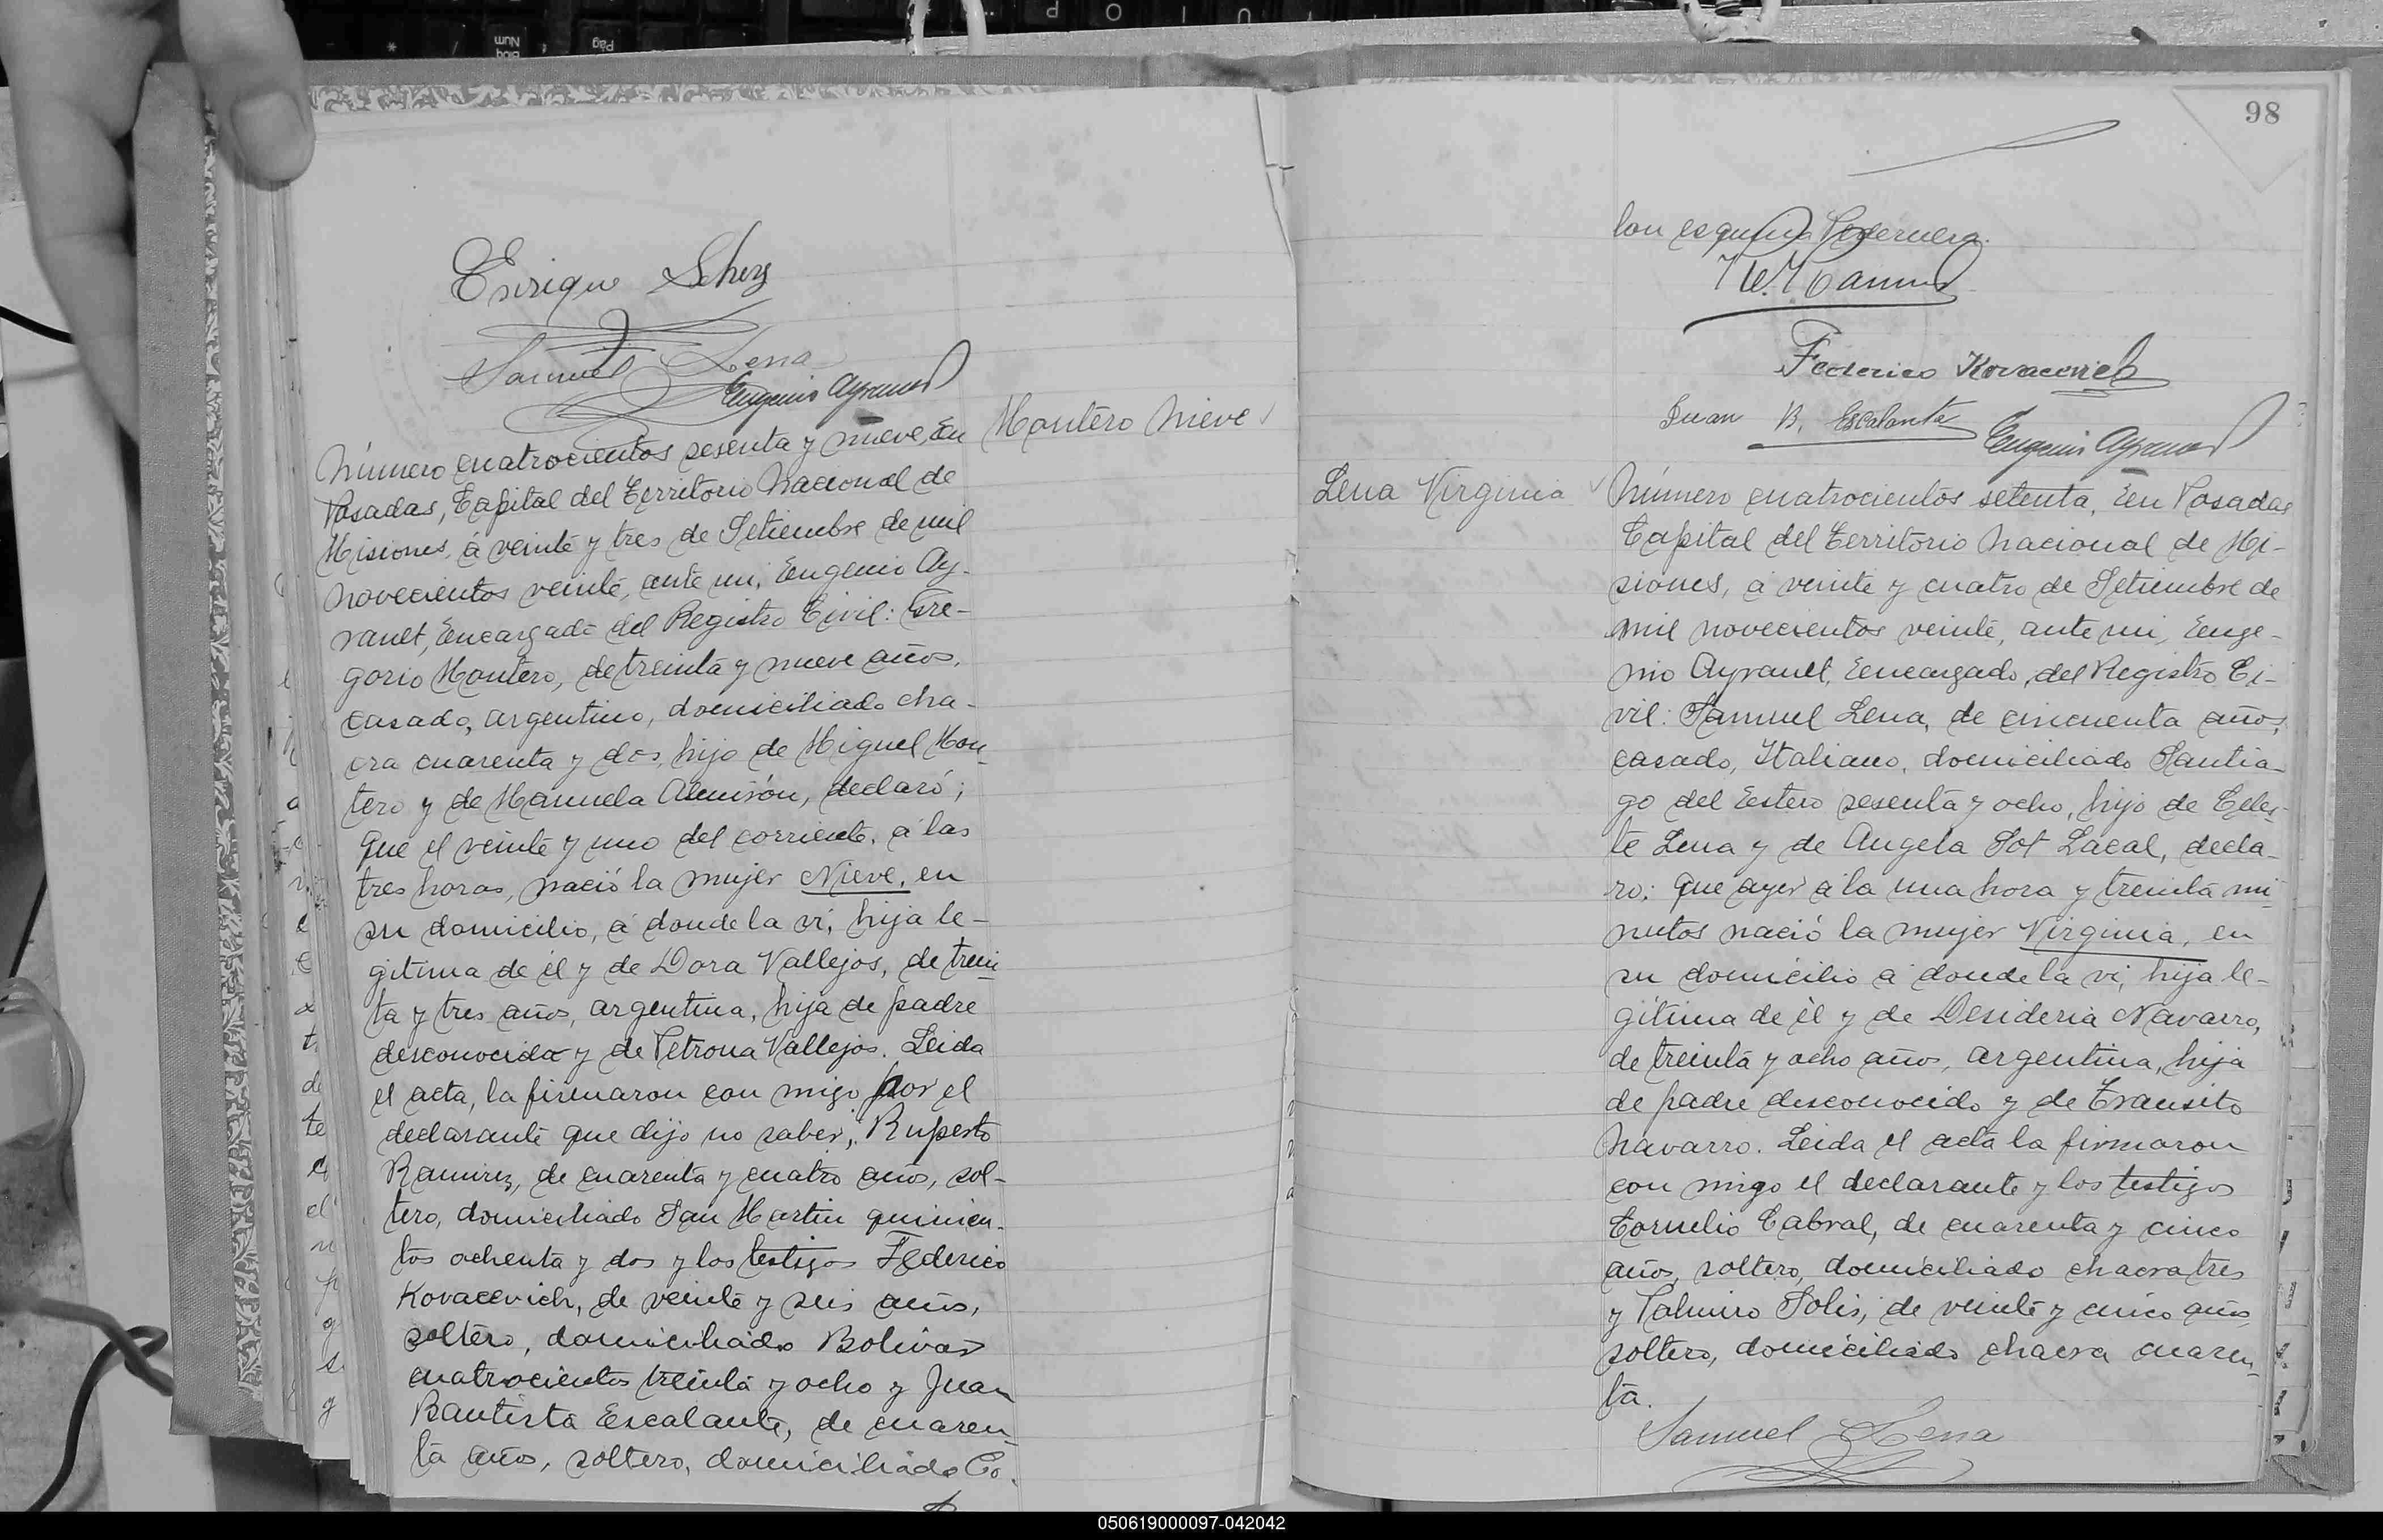 Enrique
Samuel Lena
Eugenio Ayrault
Montero Nieve
Número cuatrocientos sesenta y nueve, En
Posadas, Capital del Territorio Nacional de
Misiones, á veinte y tres de Setiembre de mil
novecientos veinte, ante mi, Eugenio Ay-
rault, Encargado del Registro Civil: Gre-
gorio Montero, de treinta y nueve años,
casado, argentino, domiciliado cha-
cra cuarenta y dos, hijo de Miguel Mon-
tero y de Manuela Almirón, declaró;
que el veinte y uno del corriente, á las
tres horas, nació la mujer Nieve, en
su domicilio, á donde la vi, hija le-
gitima de él y de Dora Vallejos, de trein-
ta y tres años, argentina, hija de padre
desconocido y de Petrona Vallejos. Leida
el acta, la firmaron con migo por el
declarante que dijo no saber, Ruperto
Ramirez, de cuarenta y cuatro años, sol-
tero, domiciliado San Martin quinien-
tos ochenta y dos y los testigos Federico
Kovacevich, de veinte y seis años,
soltero, domiciliado Bolivar
cuatrocientos treinta y ocho y Juan
Bautista Escalante, de cuaren-
ta años, soltero, domiciliado Co-
98
lon esquina Pedernera.
Federico Kovacevich
Juan B. Escalante
Eugenio Ayrault
Lena Virginia
Número cuatrocientos setenta, En Posadas
Capital del Territorio Nacional de Mi-
siones, á veinte y cuatro de Setiembre de
mil novecientos veinte, ante mi, Euge-
nio Ayrault, Encargado, del Registro Ci-
vil: Samuel Lena, de cincuenta años,
casado, Italiano, domiciliado Santia-
go del Estero sesenta y ocho, hijo de Celes-
te Lena y de Angela Sot Lacal, decla-
ro: que ayer á la una hora y treinta mi-
nutos nació la mujer Virginia, en
su domicilio á donde la vi, hija le-
gítima de él y de Desideria Navarro,
de treinta y ocho años, argentina, hija
de padre desconocido y de Transito
Navarro. Leida el acta la firmaron
con migo el declarante y los testigos
Cornelio Cabral, de cuarenta y cinco
años, soltero, domiciliado chacra tres
y Palmiro Solis, de veinte y cinco años
soltero, domiciliado chacra cuaren-
ta.
Samuel Lena
050619000097-042042